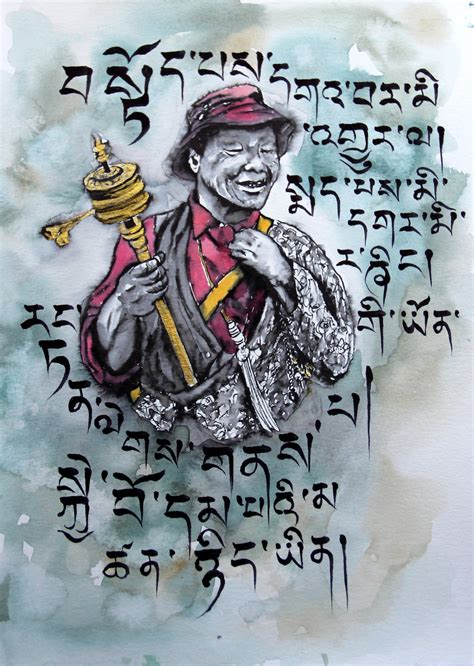 བསྟོད་པས་དགའ་བར་མི
འགྱུར་ལ།
སྨད་པས་མི་
དགར་མི་
ར་ཞིང།
རང་གི་ཡོན་
ཏ
ན་ལེགས་གནས་པ།
སྐྱེ་བོ་དམ་པའི་མ
ཚན་ཉིད་ཡིན།